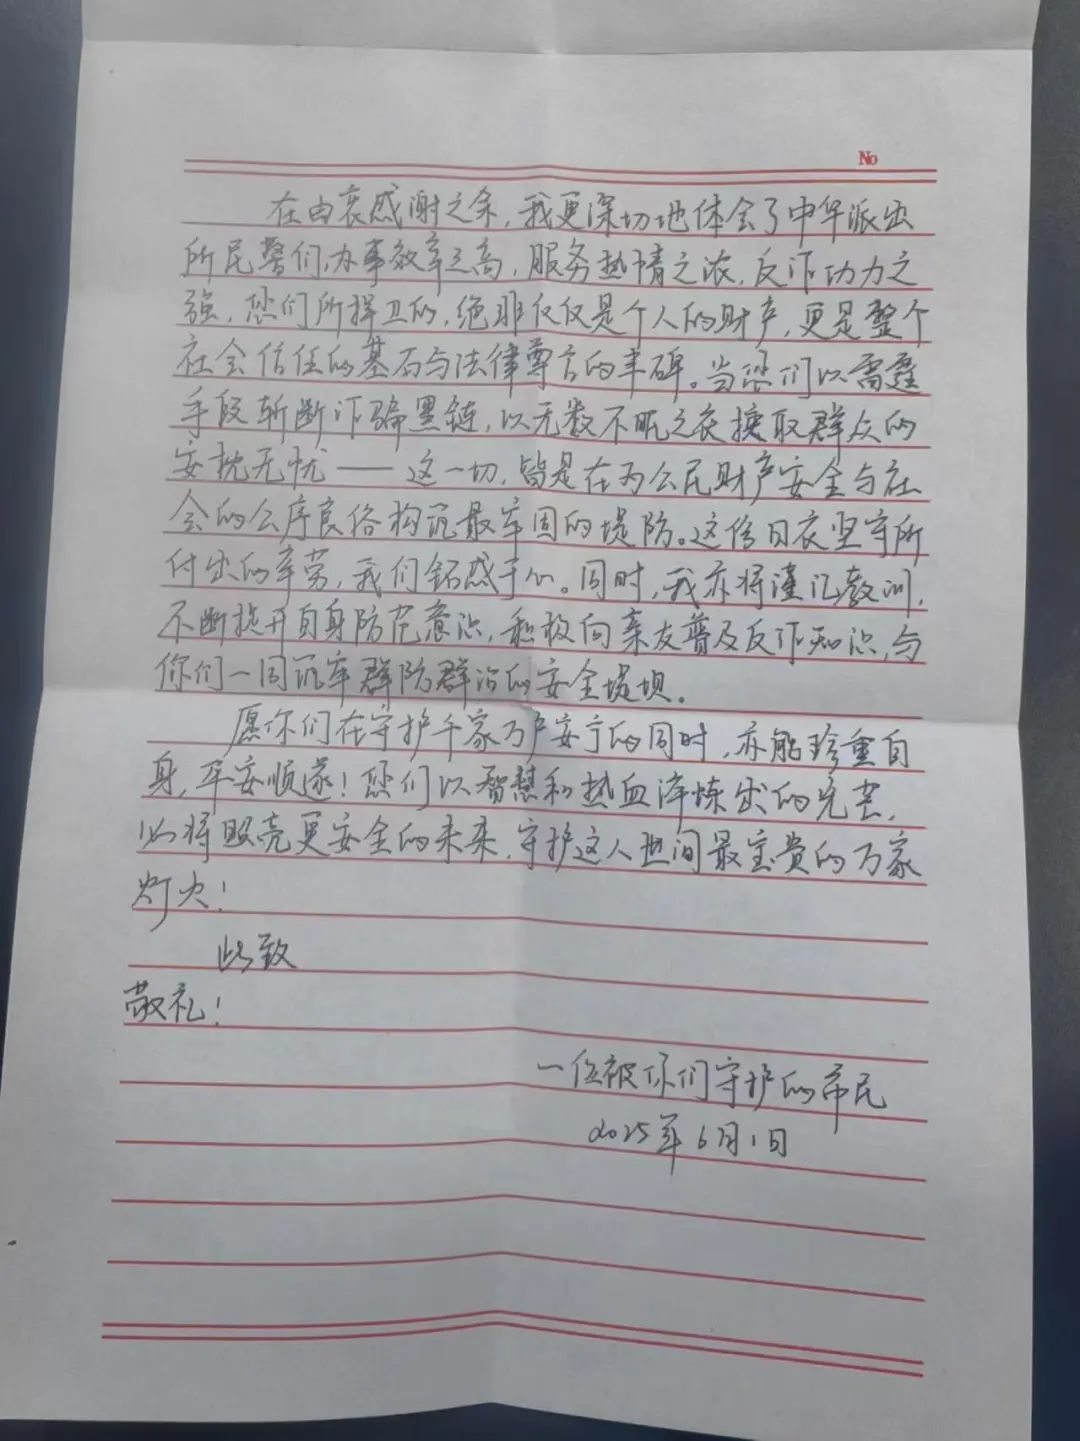 No
在由衷感谢之余，我更深切地体会了中华派出
所民警们，办事效率之高，服务热情之浓，反诈功力之
强，您们所捍卫的，绝非仅仅是个人的财产，更是整个
社会信任的基石与法律尊言的丰碑。当您们以雷霆
手段斩断诈骗黑链，以无数不眠之夜换取群众的
安枕无忧——这一切，皆是在为公民财产安全与社
会的公序良俗构筑最牢固的堤防。这份日夜坚守所
付出的辛劳，我们铭感于心。同时，我亦将谨记教训，
不断提升自身防范意识，积极向亲友普及反诈知识，与
你们一同筑牢群防群治的安全堤坝。
愿你们在守护千家万户安宁的同时，亦能珍重自
身，平安顺遂！您们以智慧和热血淬炼出的光芒，
必将照亮更安全的未来，守护这人世间最宝贵的万家
灯火！
此致
敬礼！
一位被你们守护的市民
2025年6月1日